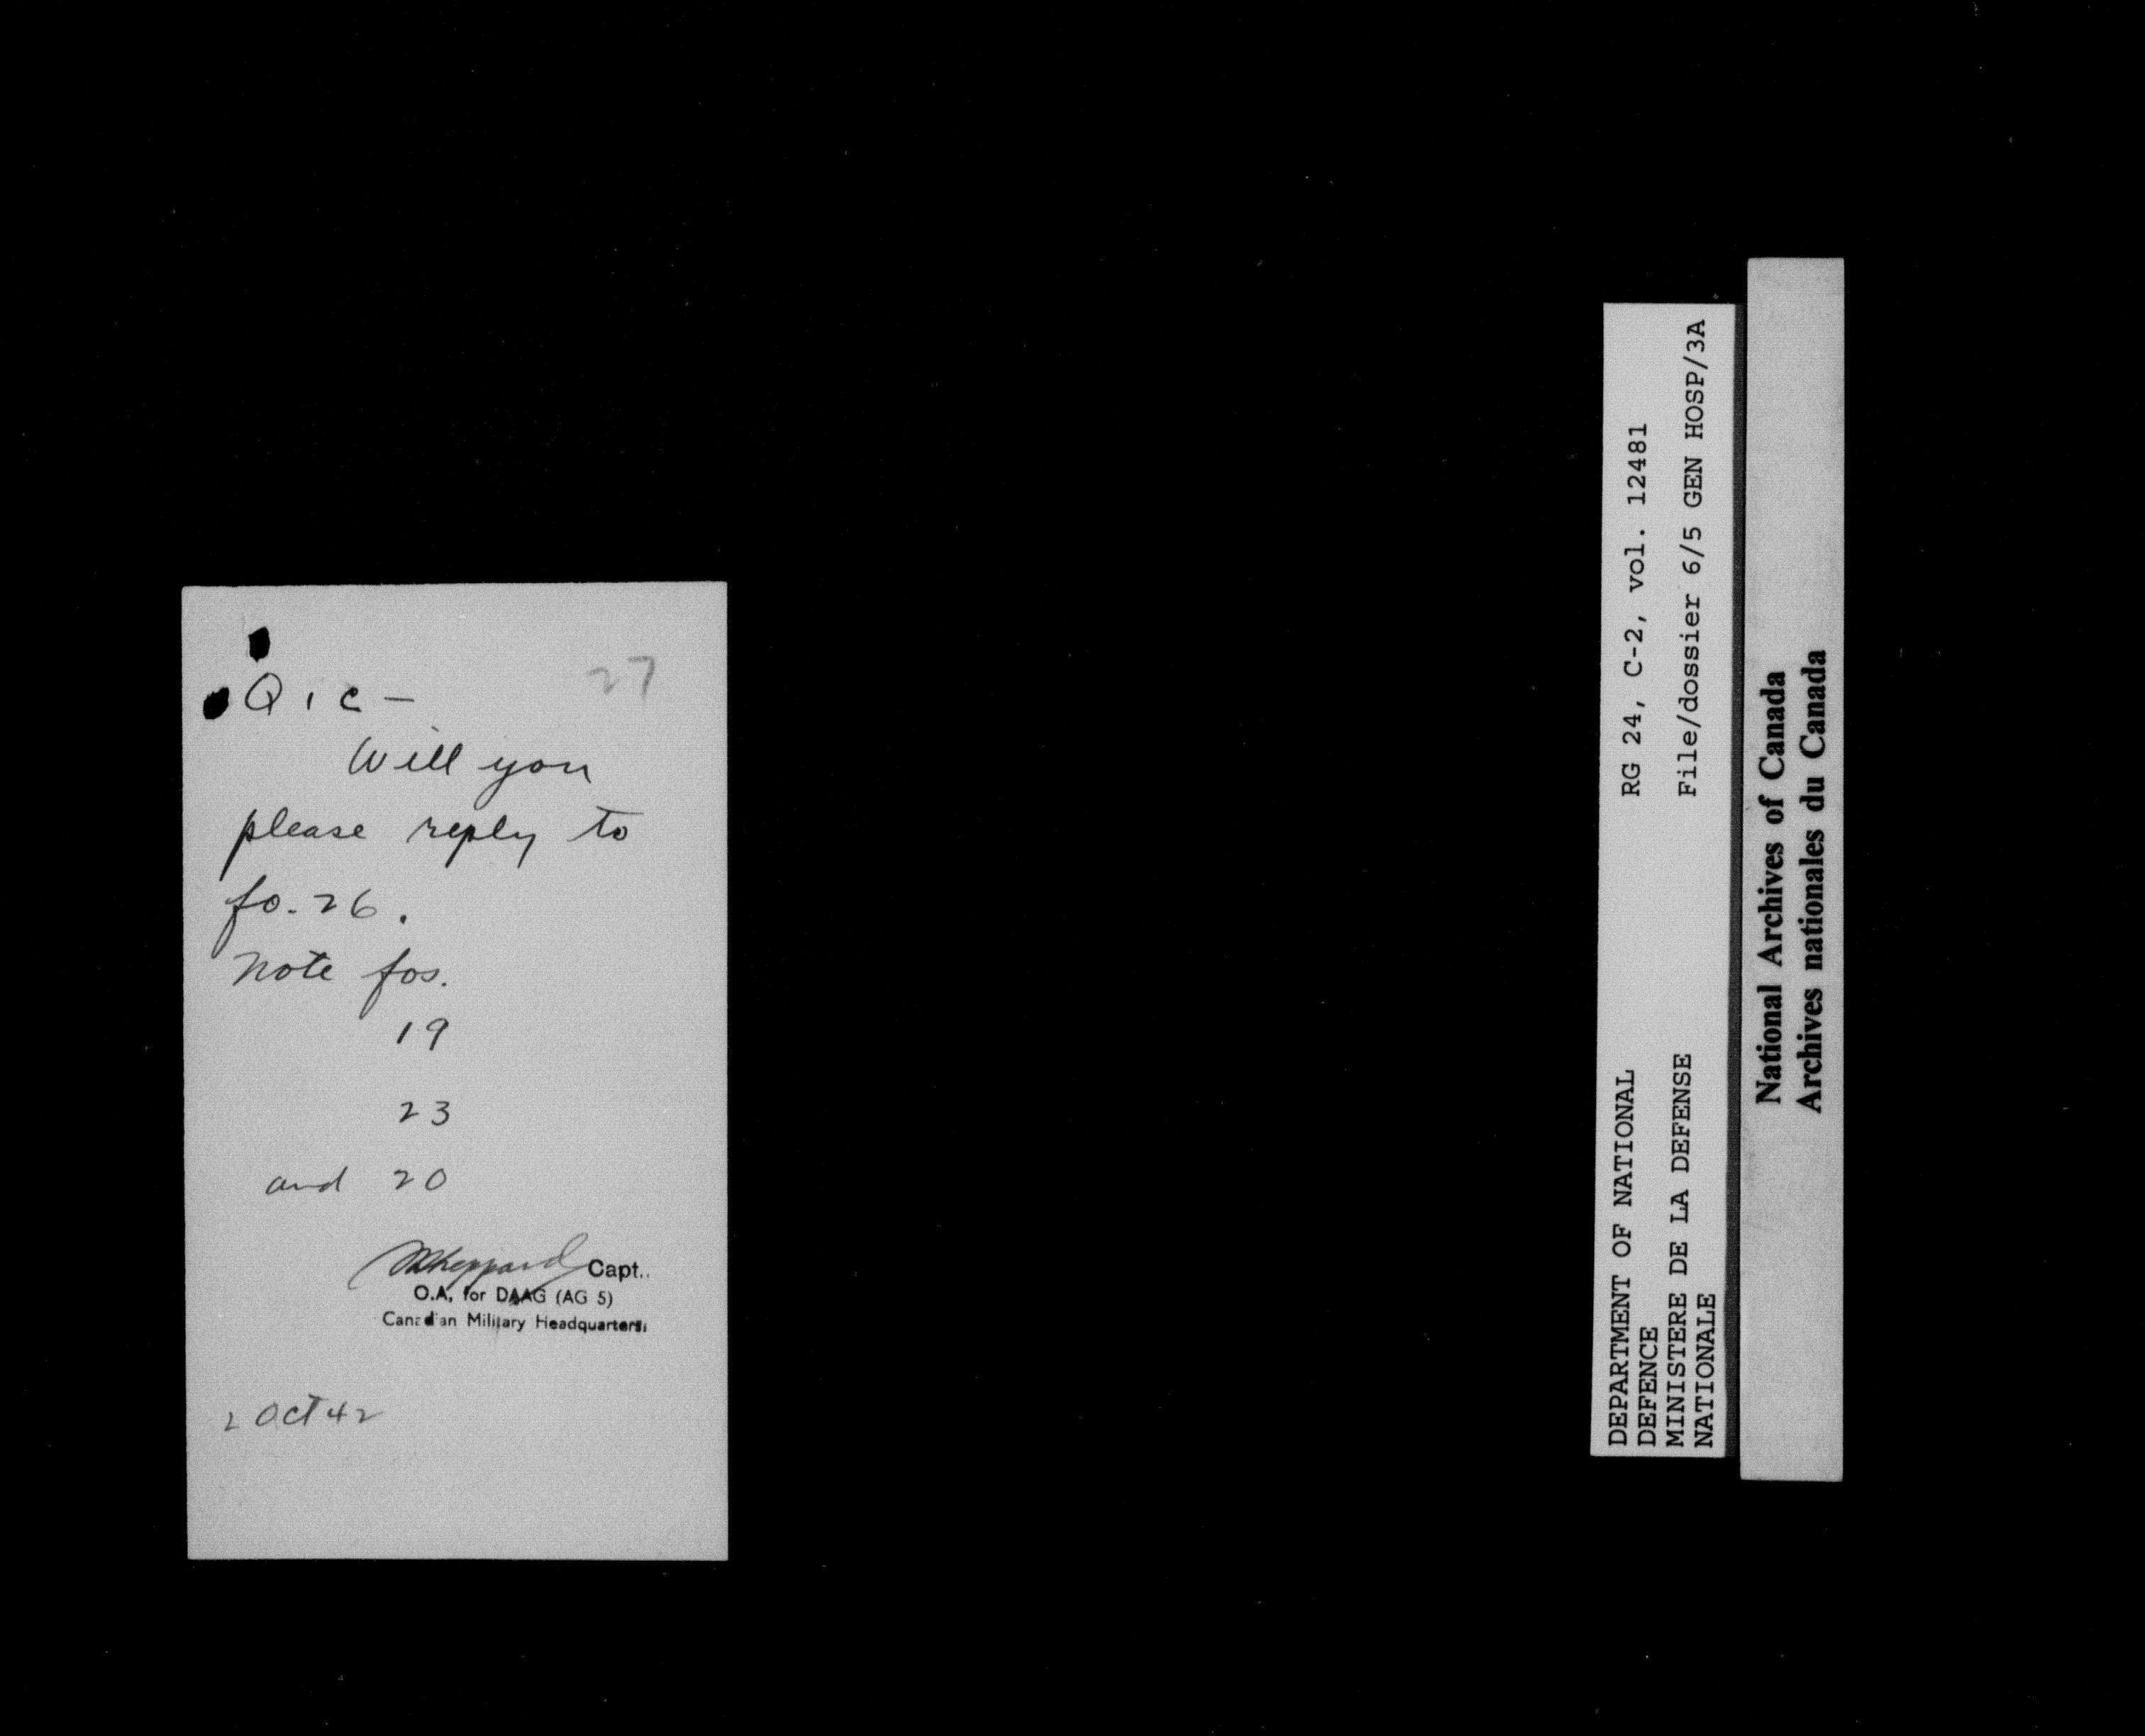 27
Q 1 C —
Will you
please reply to
fo. 26.
Note fos.
19
23
and 20
MSheppard Capt.
O.A. for DAAG (AG 5)
Canadian Military Headquarters.
2 Oct 42
DEPARTMENT OF NATIONAL
DEFENCE
MINISTERE DE LA DEFENSE
NATIONALE
RG 24, C-2, vol. 12481
File/dossier 6/5 GEN HOSP/3A
National Archives of Canada
Archives nationales du Canada